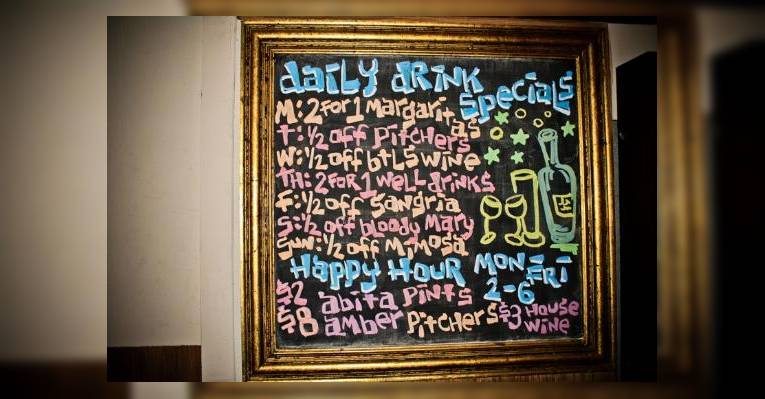 daily drink specials
M: 2 for 1 Margaritas
T: ½ off Pitchers
W: ½ off btls wine
TH: 2 for 1 well drinks
F: ½ off Sangria
S: ½ off bloody Mary
Sun: ½ off Mimosa
Happy Hour Mon-Fri 2-6
$2 abita pints
$8 amber Pitchers
$3 House wine